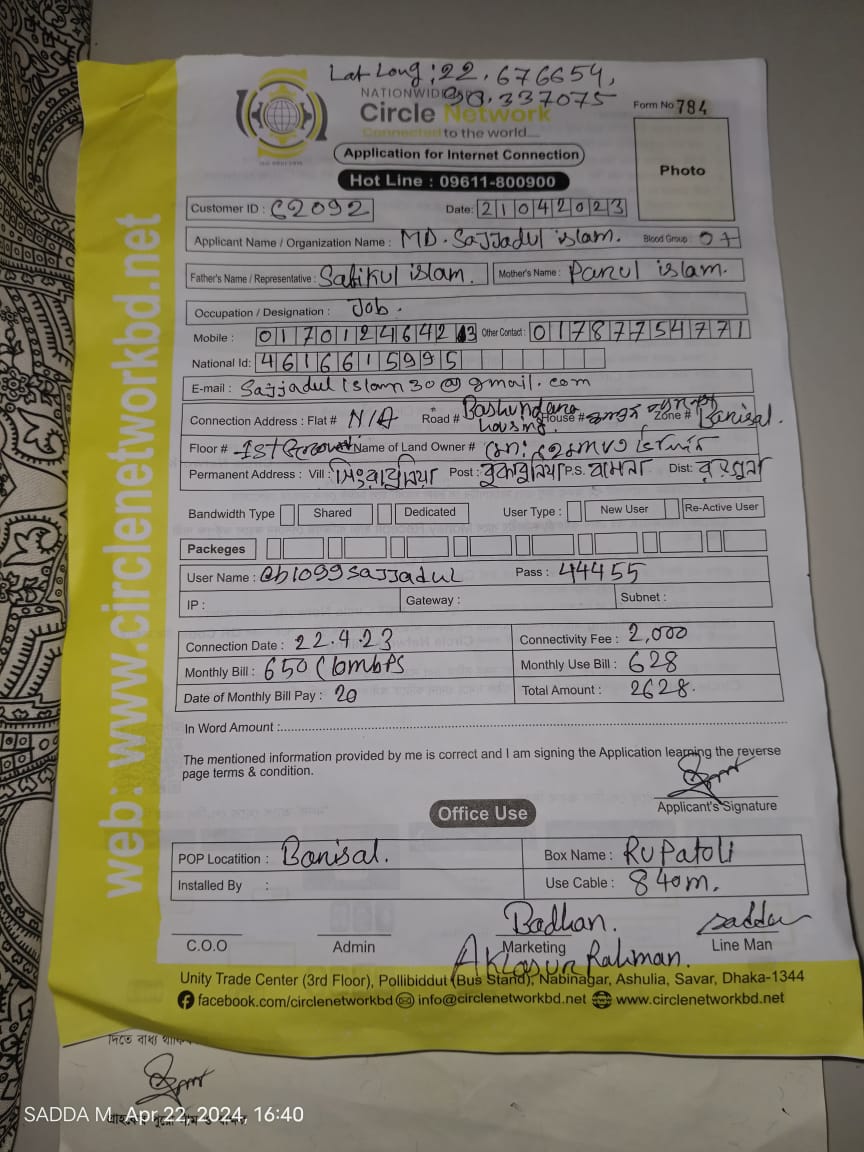 Lat Long : 22.676654,
90.337075
NATIONWIDE
Circle Network
Form No 784
Connected to the world....
Application for Internet Connection
Photo
Hot Line : 09611-800900
Customer ID : C2092 Date: 21042023
Applicant Name / Organization Name : MD. Sajjadul islam. Blood Group : O+
Father's Name / Representative : Safikul islam. Mother's Name : Parul islam.
Occupation / Designation : Job.
Mobile : 0170124642 3 Other Contact : 01787754771
National Id: 4616615995
E-mail : Sajjadul islam30@gmail.com
Connection Address : Flat # N/A Road # Bashundara housing. House # Zone # Barisal.
Floor # 1st Name of Land Owner # মো:
Permanent Address : Vill : Post : P.S. বামনা Dist: বরগুনা
Bandwidth Type Shared Dedicated User Type : New User Re-Active User
Packeges
User Name : @b1099sajjadul Pass : 44455
IP : Gateway : Subnet :
Connection Date : 22.4.23 Connectivity Fee : 2,000
Monthly Bill : 650 (10mbps Monthly Use Bill : 628
Date of Monthly Bill Pay : 20 Total Amount : 2628.
In Word Amount :
The mentioned information provided by me is correct and I am signing the Application learning the reverse
page terms & condition.
Applicant's Signature
Office Use
POP Locatition : Barisal. Box Name : Rupatoli
Installed By : Use Cable : 840m.
Badhan. sadda
C.O.O Admin Marketing Line Man
Rahman.
Unity Trade Center (3rd Floor), Pollibiddut (Bus Stand), Nabinagar, Ashulia, Savar, Dhaka-1344
facebook.com/circlenetworkbd info@circlenetworkbd.net www.circlenetworkbd.net
web: www.circlenetworkbd.net
দিতে বাধ্য
SADDA M. Apr 22, 2024, 16:40